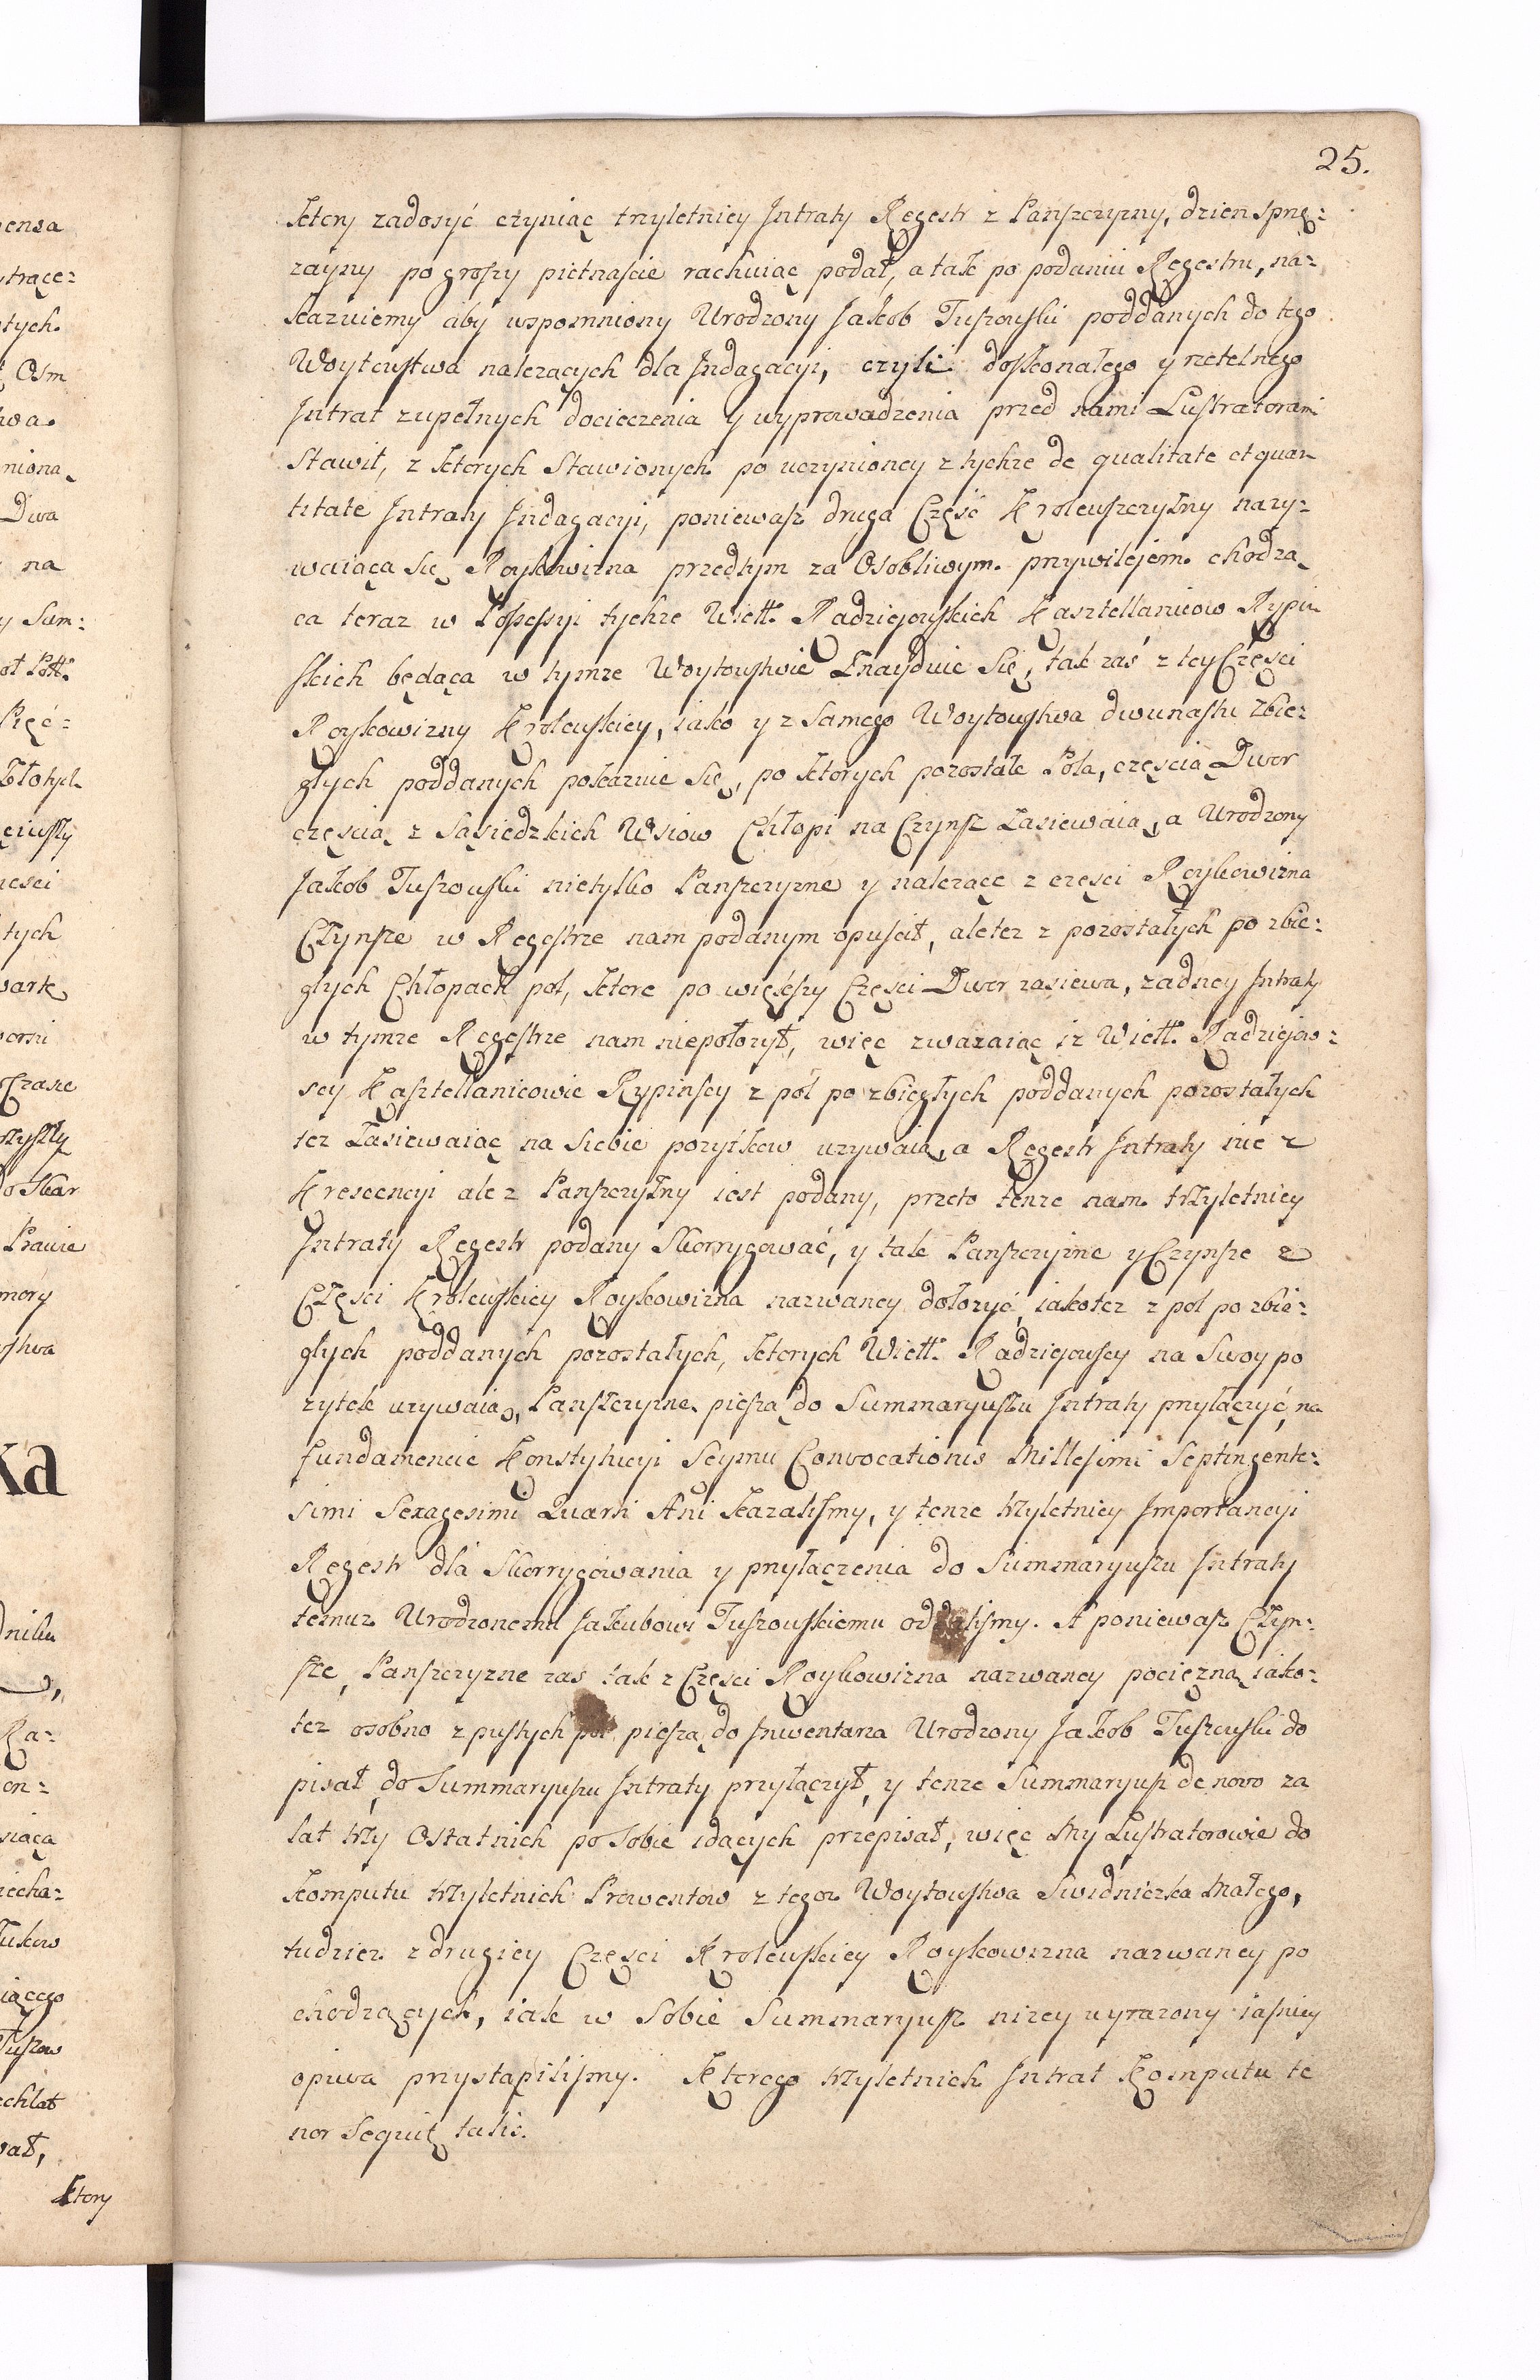 25.
ktory zadosyć czyniąc trzyletniey Jntraty Regestr z Panszczyzny, dzien sprzę:
zayny po groszy pietnascie rachuiąc podał, a tak po podaniu Regestru, na:
kazuiemy aby wspomniony Urodzony Jakob Tuszowski poddanych do tego
Woytowstwa nalezących dla Jndagacyi, czyli doskonałego y rzetelnego
Jntrat zupełnych docieczenia y wyprowadzenia przed nami Lustratorami
Stawił, z ktorych Stawionych po uczynioney z tychze de qualitate et quan
titate Jntraty Jndagacyi, poniewasz druga Część Krolewszczyzny nazy:
waiąca się Roykowizna przedtym za Osobliwym przywilejem chodzą
ca teraz w Possessyi tychze Wiell. Radziejowskich Kasztellanicow Rypin
skich będąca w tymze Woytowstwie Znayduie Się, tak zaś z tey Częsci
Roykowizny Krolewskiey, iako y z Samego Woytowstwa dwunastu zbie:
głych poddanych pokazuie Się, po ktorych pozostałe Pola, częscią Dwor
częscią z Sąsiedzkich Wsiow Chłopi na Czynsz Zasiewaią, a Urodzony
Jakob Tuszowski nietylko Panszczyzne y nalezące z częsci Roykowizna
Czynsze w Regestrze nam podanym opuscił, ale tez z pozostałych po zbie:
głych Chłopach pol, ktore po większy Częsci Dwor zasiewa, zadney Jntraty
w tymze Regestrze nam niepołozył, więc zwazaiąc iz Wiell. Radziejow:
scy Kasztellanicowie Rypinscy z pol po zbiegłych poddanych pozostałych
tez Zasiewaiąc na Siebie pozytkow uzywaią, a Regestr Jntraty nie z
Krescencyi ale z Panszczyzny iest podany, przeto tenze nam trzyletniey
Jntraty Regestr podany Skorrygować, y tak Panszczyzne y Czynsze z
Częsci Krolewskiey Roykowizna nazwaney dołozyć, iakotez z pol po zbie:
głych poddanych pozostałych, ktorych Wiell. Radziejowscy na Swoy po
zytek uzywaią, Panszczyzne pieszą do Summaryuszu Jntraty przyłączyć, na
fundamencie Konstytucyi Seymu Convocationis Millesimi Septingente:
simi Sexagesimi Quarti Ani kazalismy, y tenze trzyletniey Jmportancyi
Regestr dla Skorrygowania y przyłączenia do Summaryuszu Jntraty
temuz Urodzonemu Jakubowi Tuszowskiemu oddalismy. A poniewasz Czyn:
sze, Panszczyzne zas tak z Częsci Roykowizna nazwaney pociezną iako:
tez osobno z pustych pol pieszą do Jnwentarza Urodzony Jakob Tuszowski do
pisał, do Summaryuszu Jntraty przyłączył, y tenze Summaryusz de novo za
lat trzy Ostatnich po Sobie idących przepisał, więc My Lustratorowie do
komputu trzyletnich Prowentow z tegoz Woytowstwa Swidniczka Małego,
tudziez z drugiey Częsci Krolewskiey Roykowizna nazwaney po
chodzących, iak w Sobie Summaryusz nizey wyrazony iasniey
opiwa przystąpilismy. Ktorego trzyletnich Jntrat Komputu te
nor Sequit talis.
ktory